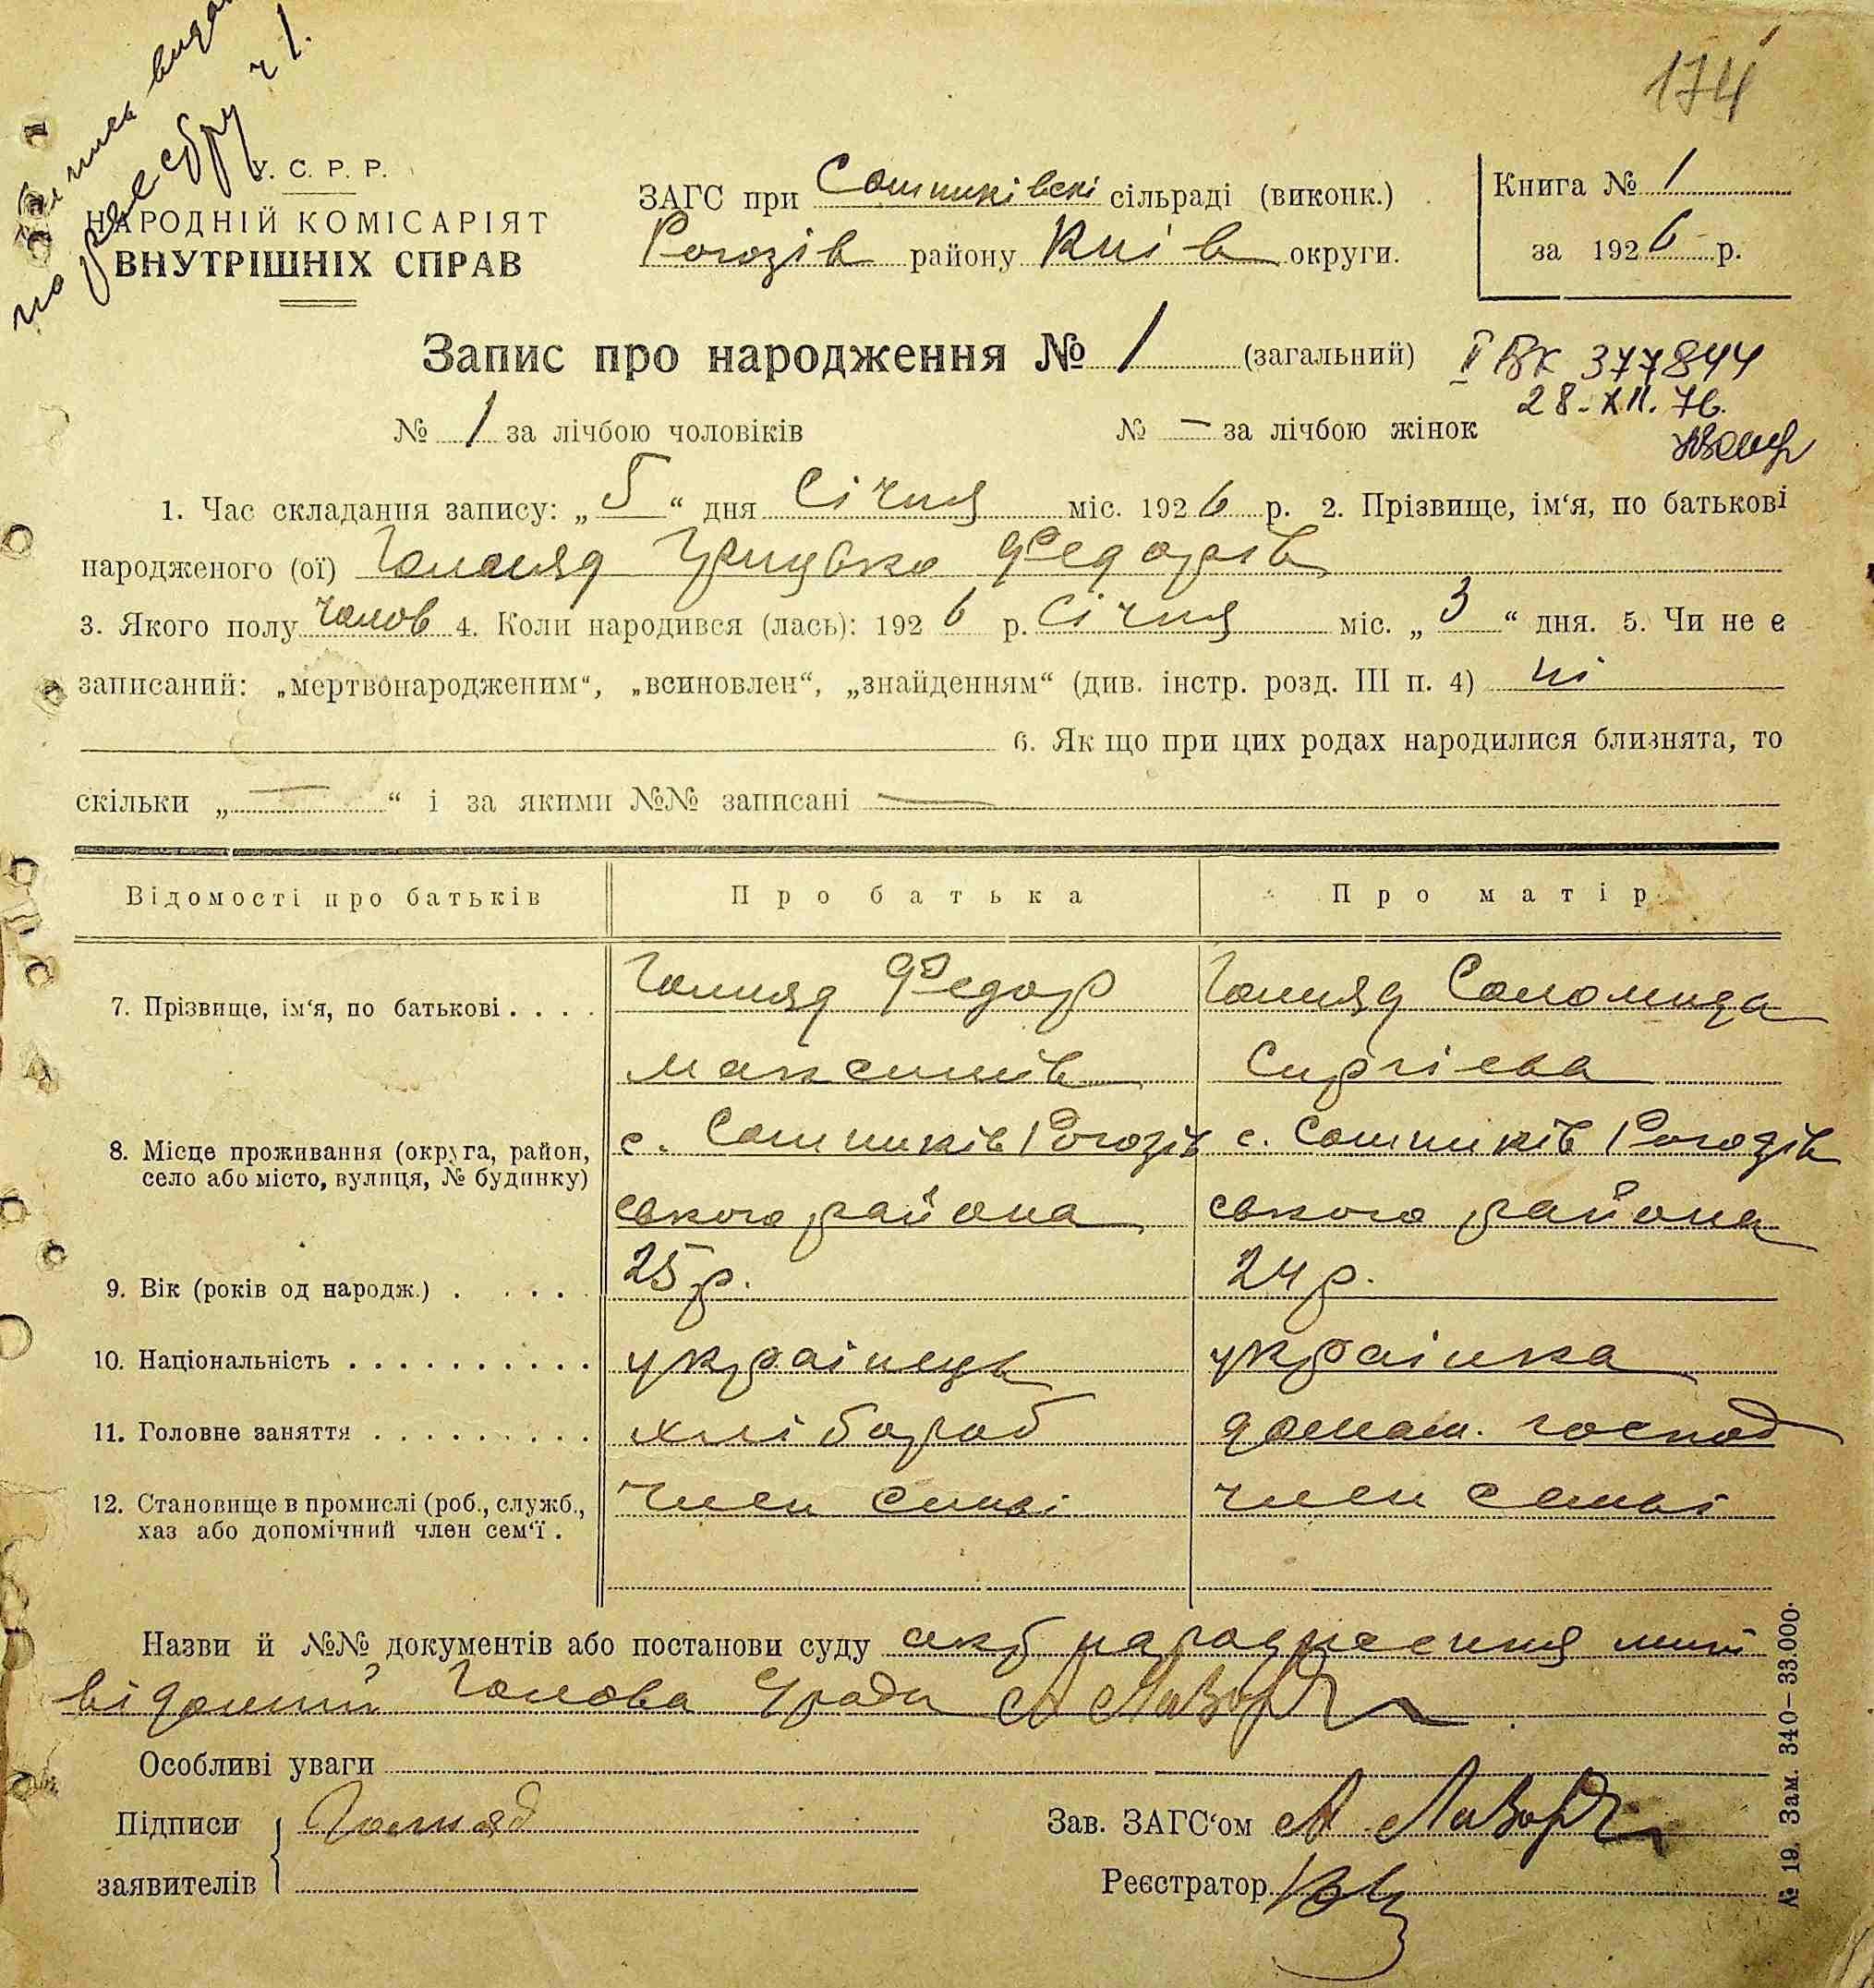 174
Випись видана
по реєстру ч 1.
У. С. Р. Р.
НАРОДНІЙ КОМІСАРІЯТ
ВНУТРІШНІХ СПРАВ
ЗАГС при Сошниківскі сільраді (виконк.)
Рогозів району Киів округи.
Книга № 1
за 1926 р.
Запис про народження № 1 (загальний)
377844
28-XII.76.
№ 1 за лічбою чоловіків № — за лічбою жінок
1. Час складання запису: „5“ дня Січня міс. 1926 р. 2. Прізвище, ім‘я, по батькові
народженого (ої) Грицько Федорів
3. Якого полу чолов 4. Коли народився (лась): 1926 р. Січня міс. „3“ дня. 5. Чи не є
записаний: „мертвонародженим“, „всиновлен“, „знайденням“ (див. інстр. розд. III п. 4) ні
6. Як що при цих родах народилися близнята, то
скільки „—“ і за якими №№ записані —
Відомості про батьків Про батька Про матір
7. Прізвище, ім‘я, по батькові . . . . Гомляд Федор Гомляд Соломида
Максимів Сиргієва
8. Місце проживання (округа, район, с. Сошників Рогозів с. Сошників Рогозів
село або місто, вулиця, № будинку)
ського района ського района
9. Вік (років од народж.) . . . . . 25 р. 24 р.
10. Національність . . . . . . . . . . українець українка
11. Головне заняття . . . . . . . . . . хлібороб домаш. господ
12. Становище в промислі (роб., служб., член симї член семьї
хаз або допомічний член сем‘ї .
Назви й №№ документів або постанови суду акт народження мині
відомий Голова С/ради
Особливі уваги
Підписи Гомляд
заявителів
Зав. ЗАГС‘ом
Реєстратор
№ 19. Зам. 340–33.000.